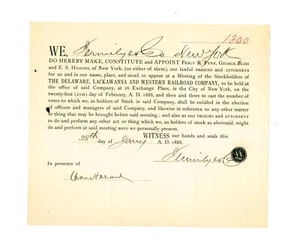 1300
WE, Vermilye & Co New York
DO HEREBY MAKE, CONSTITUTE AND APPOINT PERCY R. PYNE, GEORGE BLISS
AND E. S. HIGGINS, OF NEW YORK, (or either of them), our lawful PROXIES AND ATTORNEYS
for us and in our name, place, and stead, to appear at a Meeting of the Stockholders of
THE DELAWARE, LACKAWANNA AND WESTERN RAILROAD COMPANY, to be held at
the office of said Company, at 26 Exchange Place, in the City of New York, on the
twenty-first (21st) day of February, A. D. 1888, and then and there to cast the number of
votes to which we, as holders of Stock in said Company, shall be entitled in the election
of officers and managers of said Company, and likewise in reference to any other matter
or thing that may be brought before said meeting; and also as our PROXIES AND ATTORNEYS
to do and perform any other act of thing which we, as holders of stock as aforesaid, might
do and perform at said meeting were we personally present.
WITNESS our hands and seals this
28th day of Jany A. D. 1888.
Vermilye & Co
In presence of